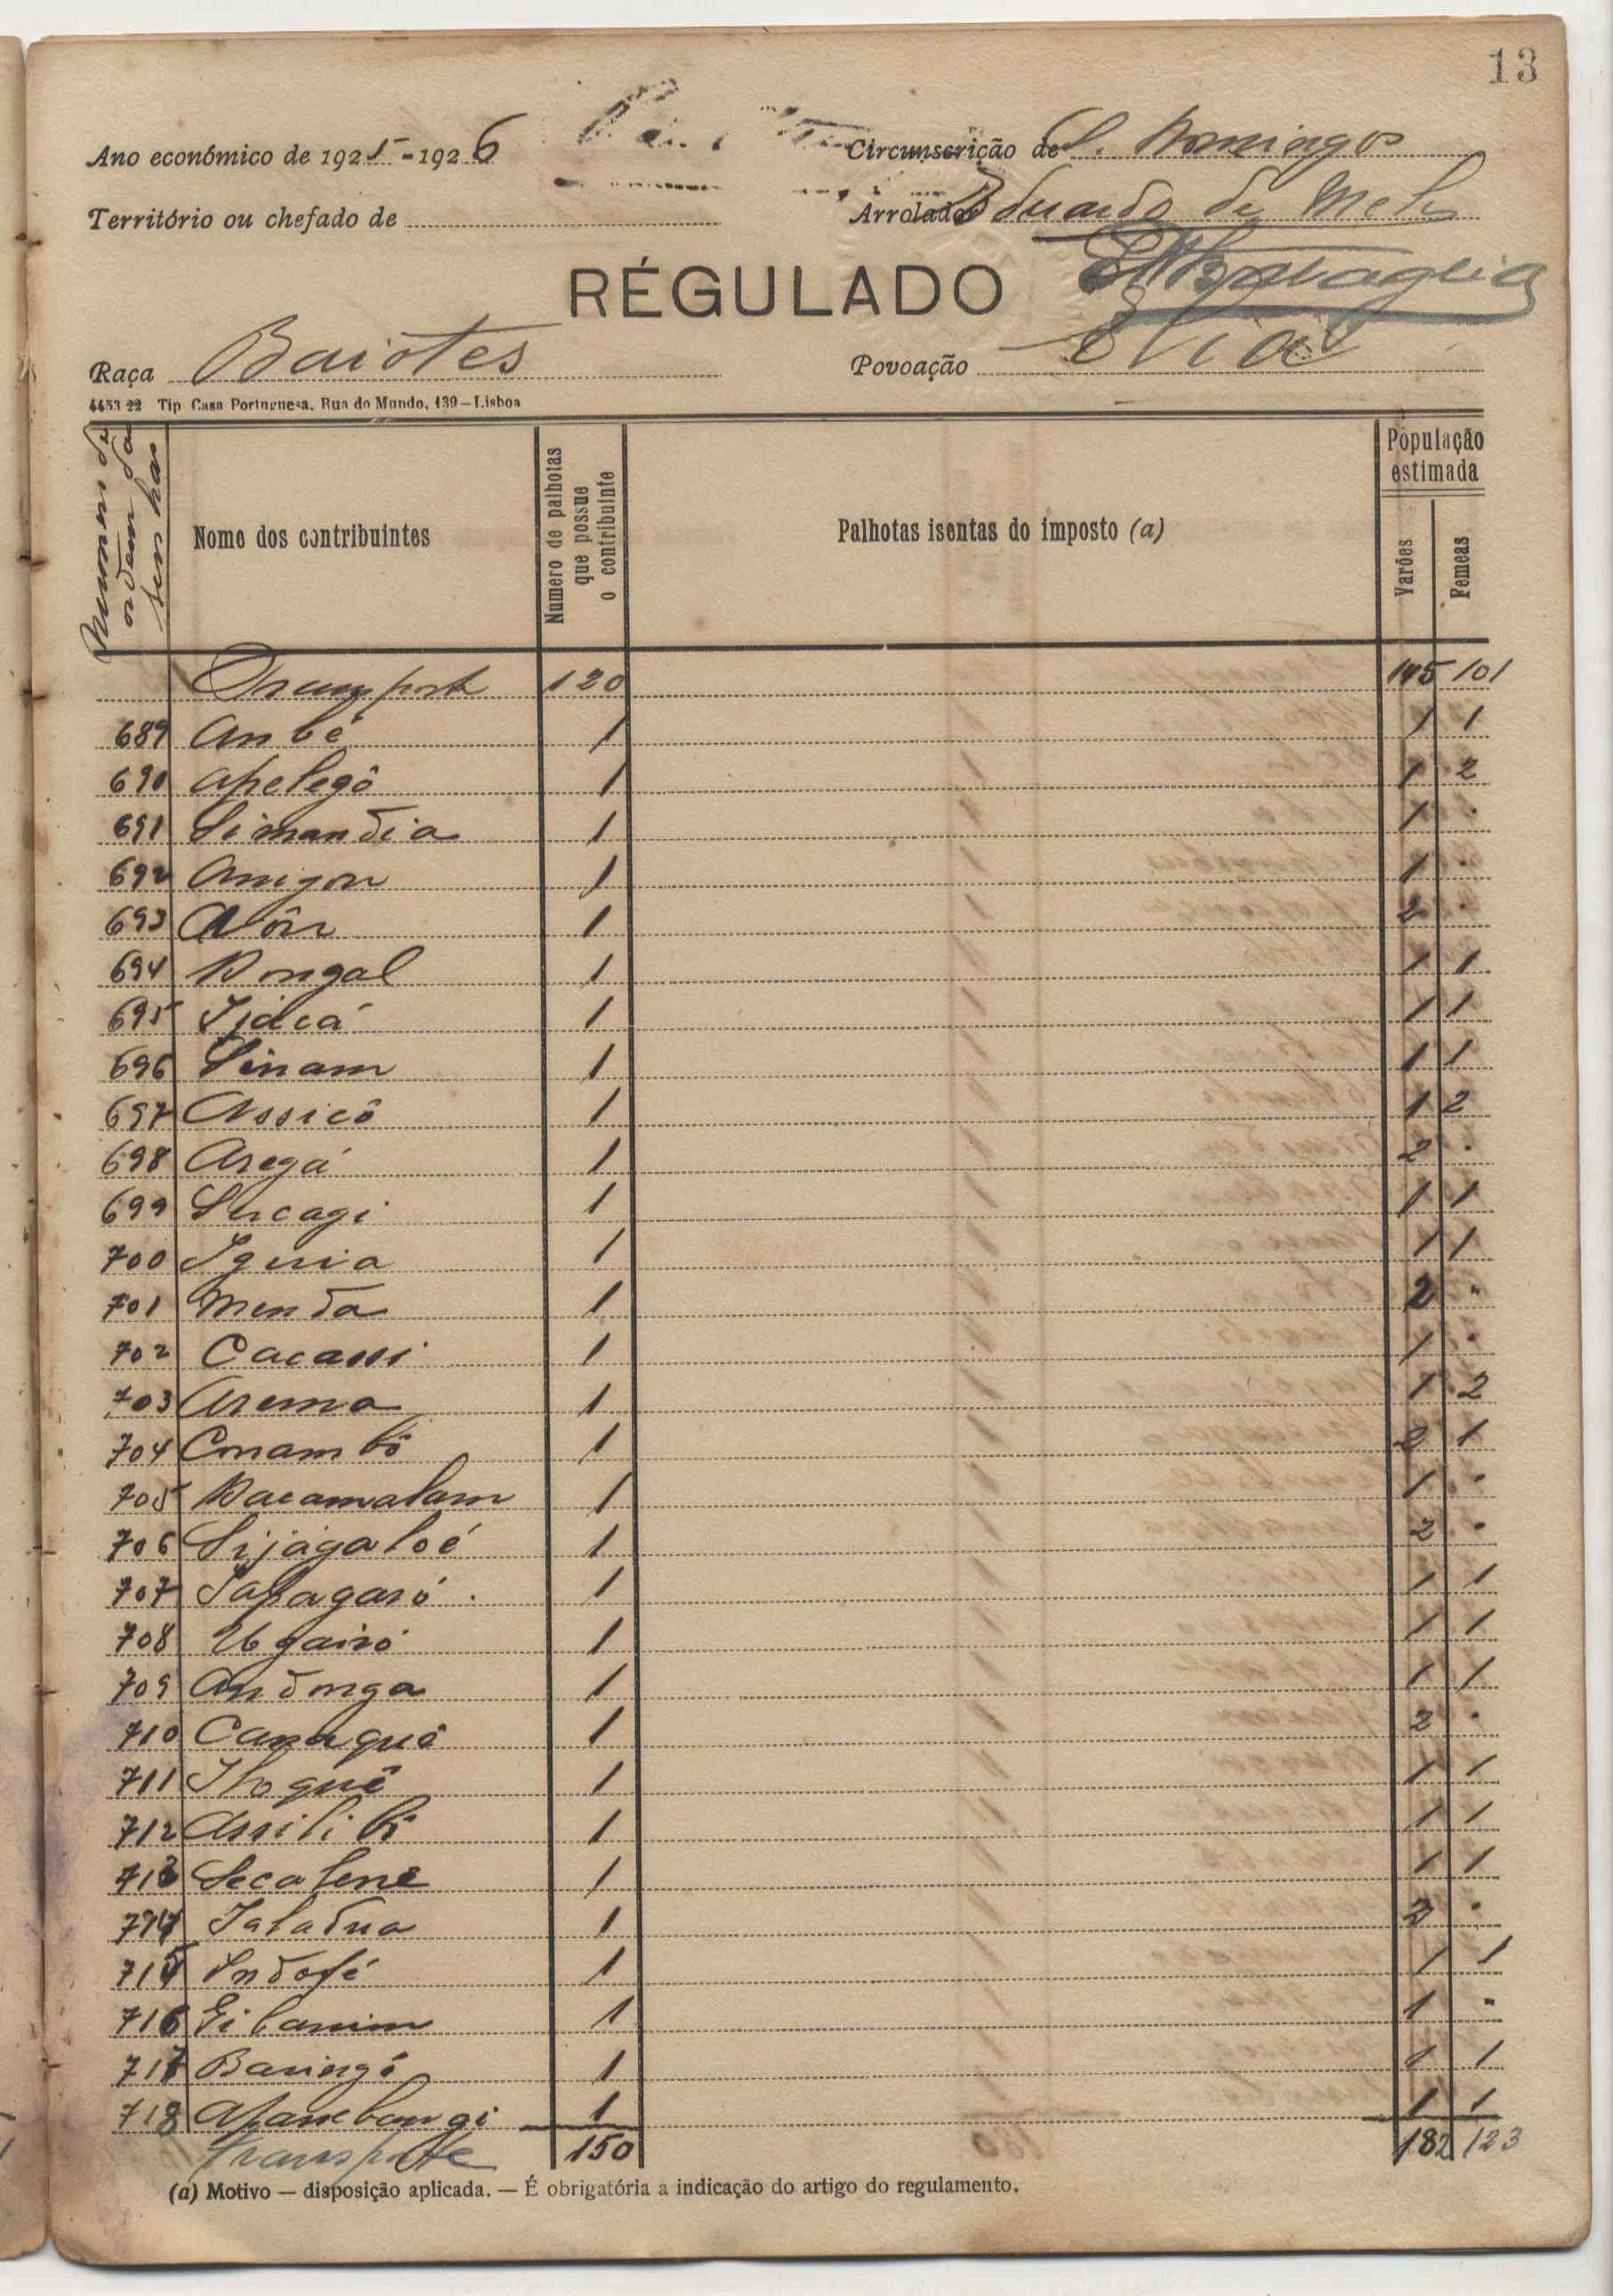 13
Ano económico de 1925-1926 Circunscrição de S. Domingos
Território ou chefado de Arrolador Eduardo de Melo
RÉGULADO
Raça Baiotes Povoação Elia
4453 22 Tip Casa Portuguesa, Rua do Mundo, 139—Lisboa
Numero de ordem das senhas
Nome dos contribuintes
Número de palhotas que possue o contribuinte
Palhotas isentas do imposto (a)
População estimada
Varões
Femeas
Transporte 120 145 101
689 Anbé 1 1 1
690 Apelegô 1 1 2
691 Simandia 1 1 "
692 Anigon 1 1 "
693 Nôn 1 2 "
694 Dongal 1 1 1
695 Ijácá 1 1 1
696 Sinam 1 1 1
697 Assicô 1 1 2
698 Aregá 1 2 "
699 Sucagi 1 1 1
700 Iguia 1 1 1
701 Menda 1 2 "
702 Cacassi 1 1 "
703 Arema 1 1 2
704 Conambô 1 2 1
705 Dacamalam 1 1 "
706 Sijágaloé 1 2 "
707 Sapagaró 1 1 1
708 Ugairó 1 1 1
709 Andonga 1 1 1
710 Canaquê 1 2 "
711 Ihoquê 1 1 1
712 Assilibi 1 1 1
713 Secalene 1 1 1
714 Jaladua 1 2 "
715 Indofé 1 1 1
716 Gibanim 1 1 "
717 Baringó 1 1 1
718 Apambangi 1 1 1
Transporte 150 182 123
(a) Motivo — disposição aplicada. — É obrigatória a indicação do artigo do regulamento.